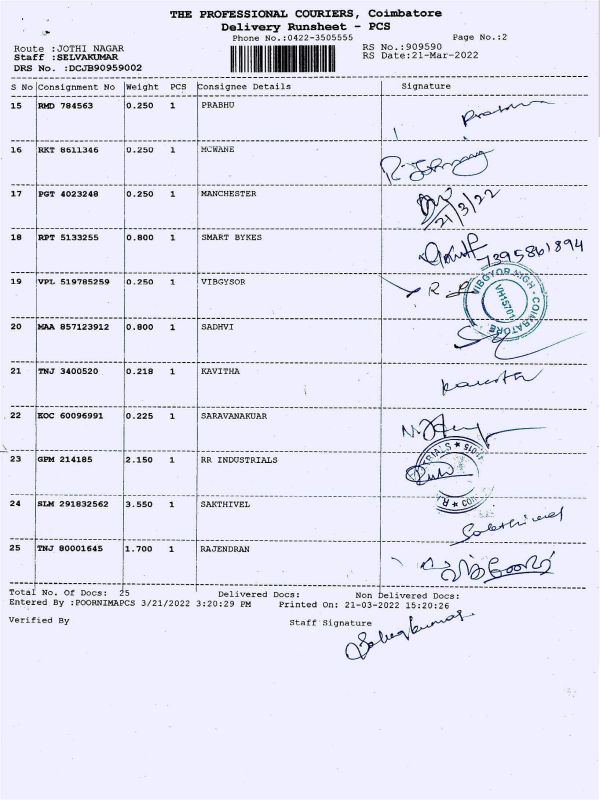 THE PROFESSIONAL COURIERS, Coimbatore
Delivery Runsheet - PCS
Phone No.:0422-3505555 Page No.:2
Route :JOTHI NAGAR RS No.:909590
Staff :SELVAKUMAR RS Date:21-Mar-2022
DRS No. :DCJB90959002
S No Consignment No Weight PCS Consignee Details Signature
15 RMD 784563 0.250 1 PRABHU
16 RKT 8611346 0.250 1 MCWANE
17 PGT 4023248 0.250 1 MANCHESTER
21/3/22
18 RPT 5133255 0.800 1 SMART BYKES
7395861894
19 VPL 519785259 0.250 1 VIBGYSOR
VIBGYOR HIGH - COIMBATORE
VH15701
20 MAA 857123912 0.800 1 SADHVI
21 TNJ 3400520 0.218 1 KAVITHA
22 EOC 60096991 0.225 1 SARAVANAKUAR
23 GPM 214185 2.150 1 RR INDUSTRIALS
24 SLM 291832562 3.550 1 SAKTHIVEL
Sakthivel
25 TNJ 80001645 1.700 1 RAJENDRAN
Total No. Of Docs: 25 Delivered Docs: Non Delivered Docs:
Entered By :POORNIMAPCS 3/21/2022 3:20:29 PM Printed On: 21-03-2022 15:20:26
Verified By Staff Signature